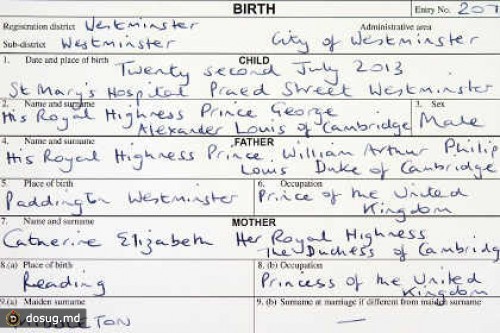 BIRTH
Entry No. 207
Registration district Westminster
Administrative area
Sub-district Westminster
City of Westminster
1. Date and place of birth
CHILD
Twenty second July 2013
St Mary's Hospital Praed Street Westminster
2. Name and surname
3. Sex
His Royal Highness Prince George
Alexander Louis of Cambridge
Male
4. Name and surname
FATHER
His Royal Highness Prince William Arthur Philip
Louis Duke of Cambridge
5. Place of birth
6. Occupation
Paddington Westminster
Prince of the United
Kingdom
7. Name and surname
MOTHER
Catherine Elizabeth Her Royal Highness
The Duchess of Cambridg
8.(a) Place of birth
8. (b) Occupation
Reading
Princess of the United
Kingdom
9.(a) Maiden surname
9. (b) Surname at marriage if different from maiden surname
LETON
dosug.md